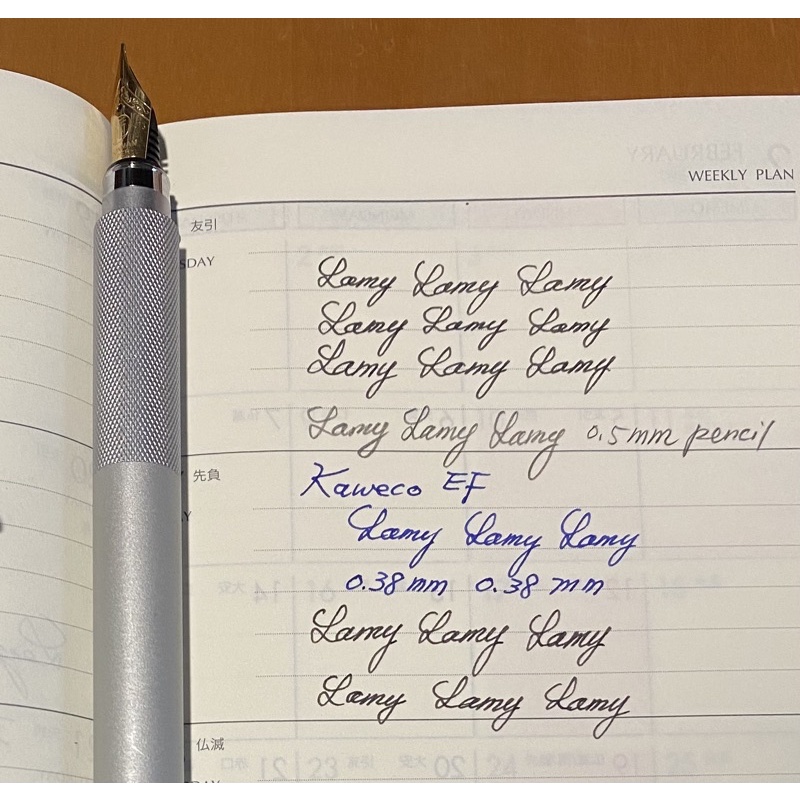 WEEKLY PLAN
友引
SDAY
Lamy Lamy Lamy
Lamy Lamy Lamy
Lamy Lamy Lamy
Lamy Lamy Lamy 0.5mm pencil
先負
Kaweco EF
Lamy Lamy Lamy
0.38mm 0.38 mm
Lamy Lamy Lamy
Lamy Lamy Lamy
仏滅